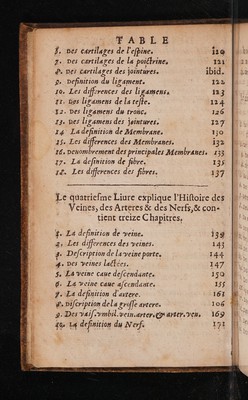 TABLE
6. Des cartilages de l'espine. 120
7. Des cartilages de la poictrine. 121
8. Des cartilages des jointures. ibid.
9. Definition du ligament. 122
10. Les differences des ligamens. 123
11. Des ligamens de la teste. 124
12. Des ligamens du tronc. 126
13. Des ligamens des jointures. 127
14. La definition de Membrane. 130
15. Les differences des Membranes. 132
16. Denombrement des principales Membranes. 133
17. La definition de fibre. 135
18. Les differences des fibres. 137
Le quatriesme Liure explique l'Histoire des
Veines, des Arteres & des Nerfs, & con-
tient treize Chapitres.
1. La definition de veine. 139
2. Les differences des veines. 143
3. Description de la veine porte. 144
4. Des veines lactées. 147
5. La veine caue descendante. 150
6. La veine caue ascendante. 155
7. La definition d'artere. 161
8. Discription de la grosse artere. 166
9. Des vais. vmbil. vein. arter. & arter. ven. 169
10. La definition du Nerf. 171